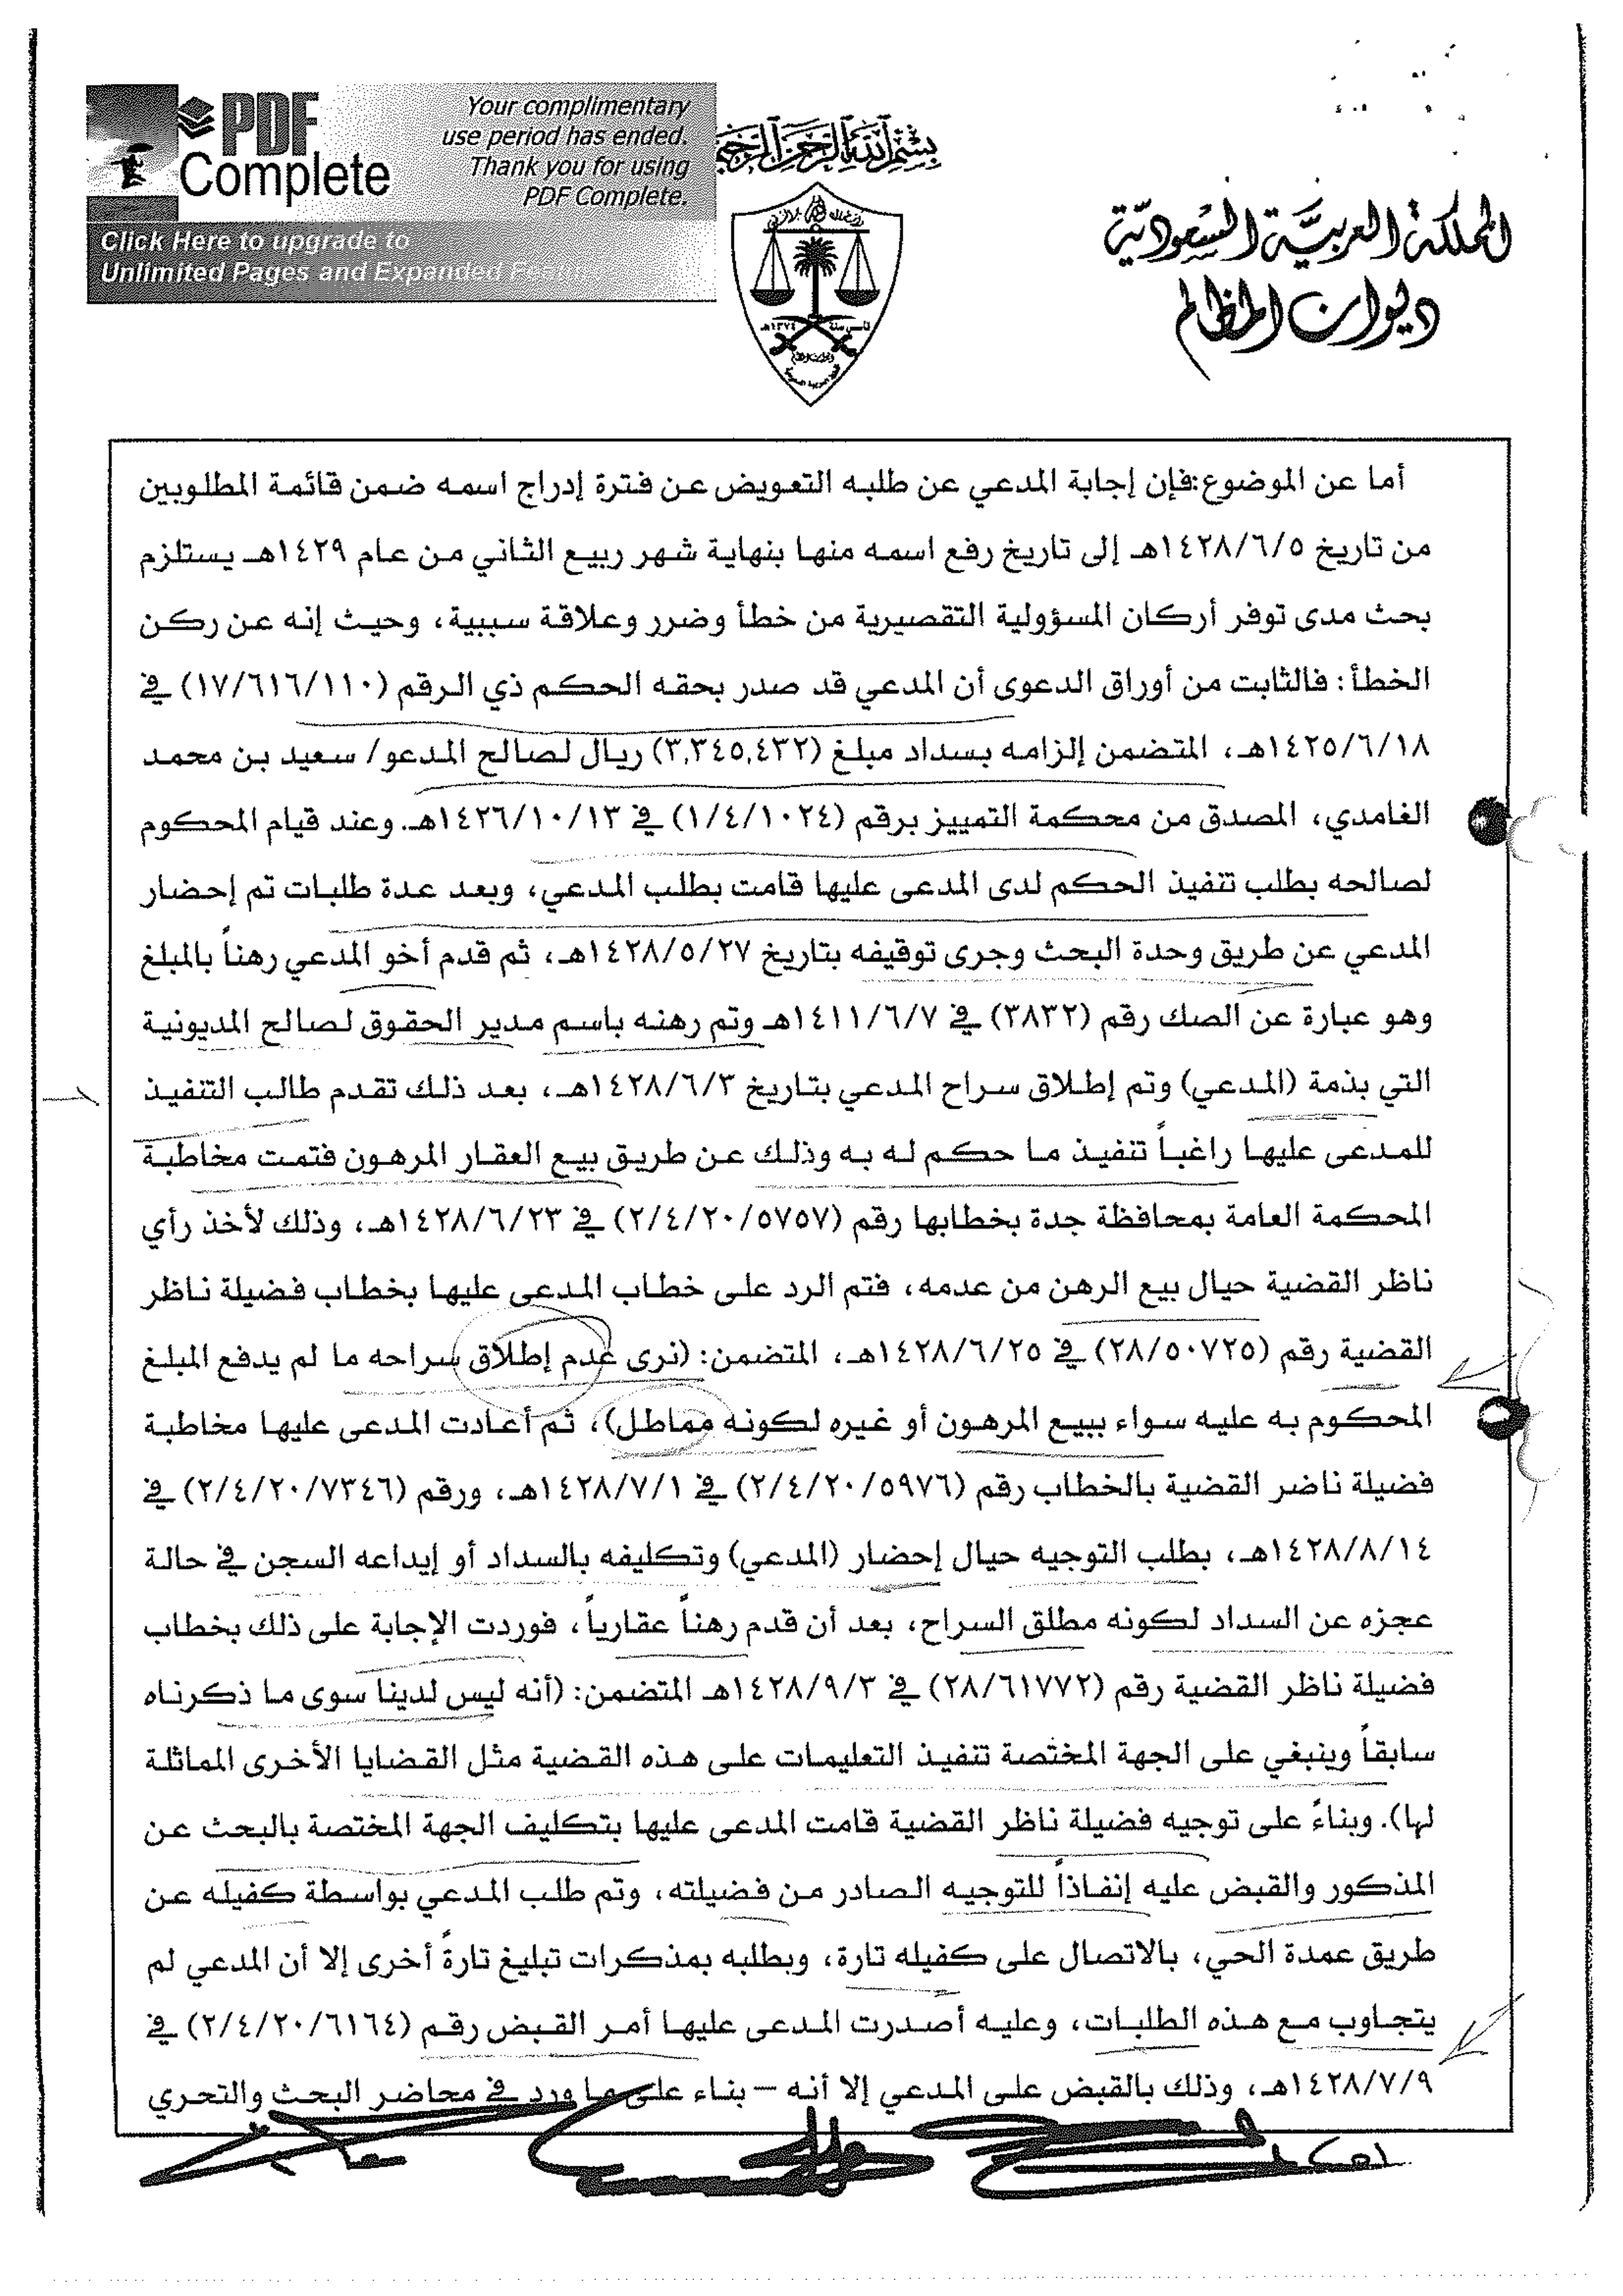 PDF Complete
Your complimentary
use period has ended.
Thank you for using
PDF Complete.
Click Here to upgrade to
Unlimited Pages and Expanded
بسم الله الرحمن الرحيم
المملكة العربية السعودية
ديوان المظالم
أما عن الموضوع:فإن إجابة المدعي عن طلبه التعويض عن فترة إدراج اسمه ضمن قائمة المطلوبين
من تاريخ ١٤٢٨/٦/٥هـ إلى تاريخ رفع اسمه منها بنهاية شهر ربيع الثاني من عام ١٤٢٩هـ يستلزم
بحث مدى توفر أركان المسؤولية التقصيرية من خطأ وضرر وعلاقة سببية، وحيث إنه عن ركن
الخطأ: فالثابت من أوراق الدعوى أن المدعي قد صدر بحقه الحكم ذي الرقم (١٧/٦١٦/١١٠) في
١٤٢٥/٦/١٨هـ، المتضمن إلزامه بسداد مبلغ (٣,٣٤٥,٤٣٢) ريال لصالح المدعو/ سعيد بن محمد
الغامدي، المصدق من محكمة التمييز برقم (١/٤/١٠٢٤) في ١٤٢٦/١٠/١٣هـ. وعند قيام المحكوم
لصالحه بطلب تنفيذ الحكم لدى المدعى عليها قامت بطلب المدعي، وبعد عدة طلبات تم إحضار
المدعي عن طريق وحدة البحث وجرى توقيفه بتاريخ ١٤٢٨/٥/٢٧هـ، ثم قدم أخو المدعي رهناً بالمبلغ
وهو عبارة عن الصك رقم (٣٨٣٢) في ١٤١١/٦/٧هـ وتم رهنه باسم مدير الحقوق لصالح المديونية
التي بذمة (المدعي) وتم إطلاق سراح المدعي بتاريخ ١٤٢٨/٦/٣هـ، بعد ذلك تقدم طالب التنفيذ
للمدعى عليها راغباً تنفيذ ما حكم له به وذلك عن طريق بيع العقار المرهون فتمت مخاطبة
المحكمة العامة بمحافظة جدة بخطابها رقم (٢/٤/٢٠/٥٧٥٧) في ١٤٢٨/٦/٢٣هـ، وذلك لأخذ رأي
ناظر القضية حيال بيع الرهن من عدمه، فتم الرد على خطاب المدعى عليها بخطاب فضيلة ناظر
القضية رقم (٢٨/٥٠٧٢٥) في ١٤٢٨/٦/٢٥هـ، المتضمن: (نرى عدم إطلاق سراحه ما لم يدفع المبلغ
المحكوم به عليه سواء ببيع المرهون أو غيره لكونه مماطل)، ثم أعادت المدعى عليها مخاطبة
فضيلة ناضر القضية بالخطاب رقم (٢/٤/٢٠/٥٩٧٦) في ١٤٢٨/٧/١هـ، ورقم (٢/٤/٢٠/٧٣٤٦) في
١٤٢٨/٨/١٤هـ، بطلب التوجيه حيال إحضار (المدعي) وتكليفه بالسداد أو إيداعه السجن في حالة
عجزه عن السداد لكونه مطلق السراح، بعد أن قدم رهناً عقارياً، فوردت الإجابة على ذلك بخطاب
فضيلة ناظر القضية رقم (٢٨/٦١٧٧٢) في ١٤٢٨/٩/٣هـ المتضمن: (أنه ليس لدينا سوى ما ذكرناه
سابقاً وينبغي على الجهة المختصة تنفيذ التعليمات على هذه القضية مثل القضايا الأخرى المماثلة
لها). وبناءً على توجيه فضيلة ناظر القضية قامت المدعى عليها بتكليف الجهة المختصة بالبحث عن
المذكور والقبض عليه إنفاذاً للتوجيه الصادر من فضيلته، وتم طلب المدعي بواسطة كفيله عن
طريق عمدة الحي، بالاتصال على كفيله تارة، وبطلبه بمذكرات تبليغ تارةً أخرى إلا أن المدعي لم
يتجاوب مع هذه الطلبات، وعليه أصدرت المدعى عليها أمر القبض رقم (٢/٤/٢٠/٦١٦٤) في
١٤٢٨/٧/٩هـ، وذلك بالقبض على المدعي إلا أنه – بناء على ما ورد في محاضر البحث والتحري